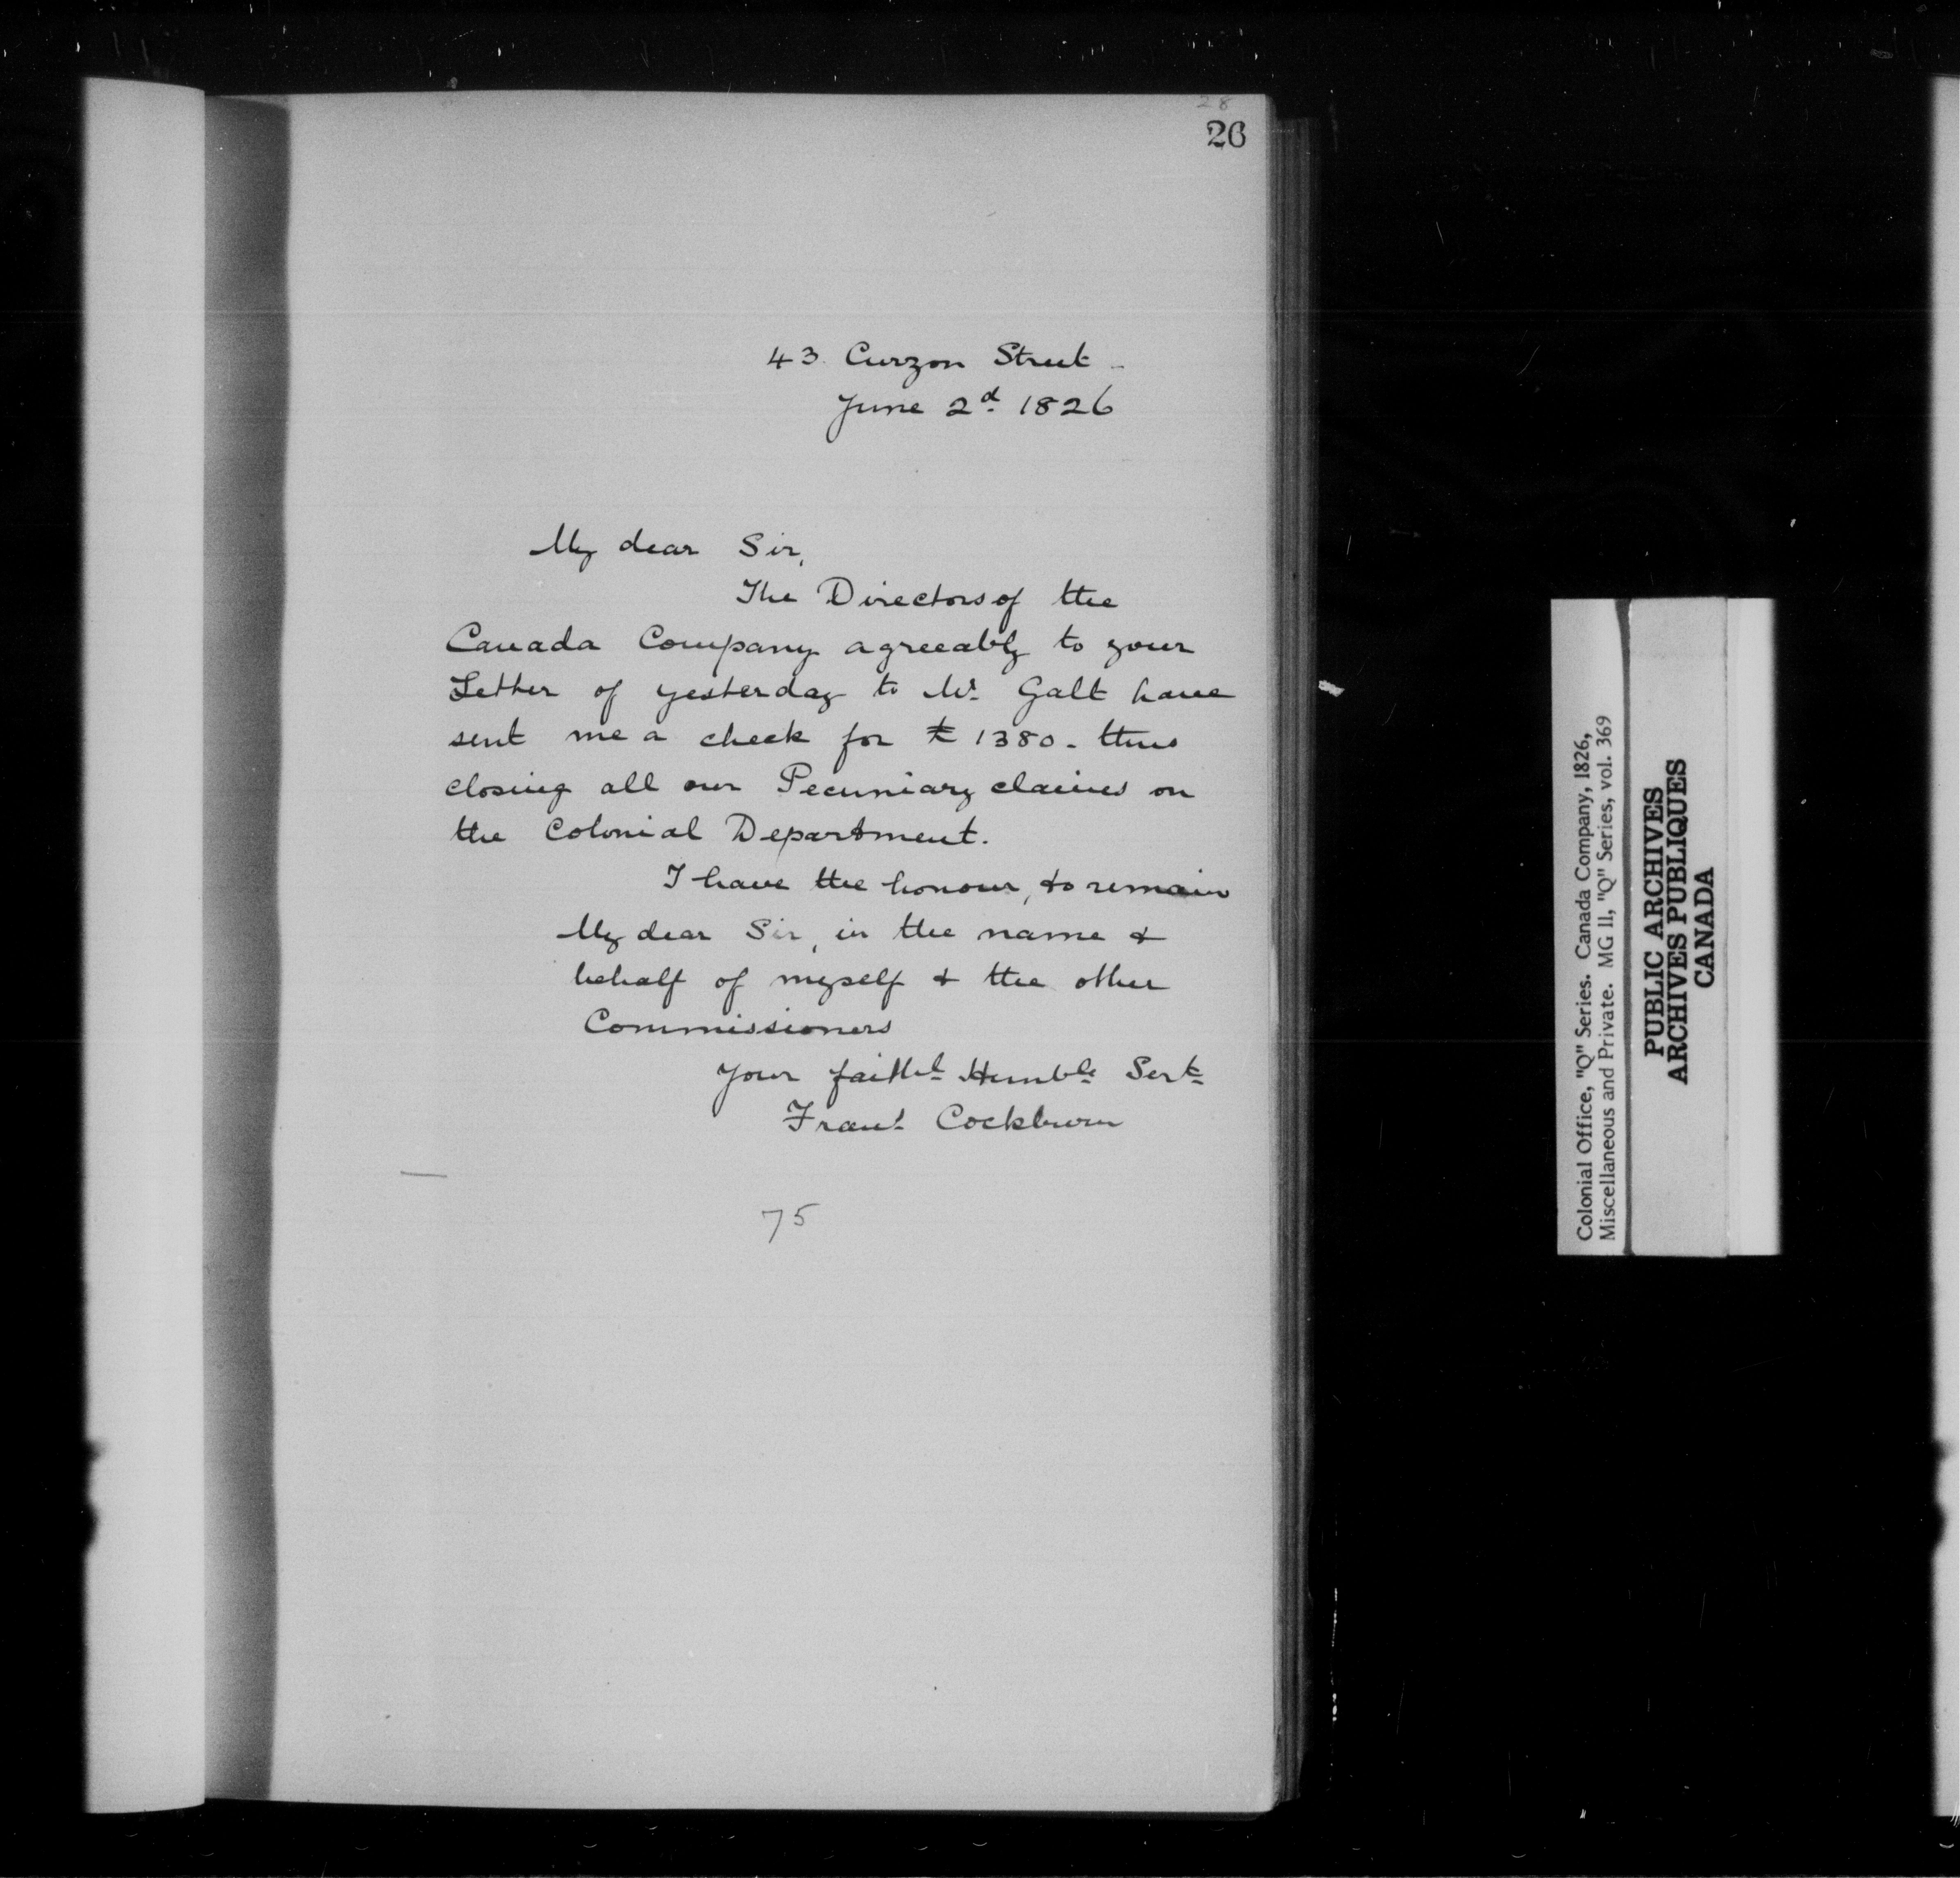 28
26
43. Curzon Street -
June 2d. 1826
My dear Sir,
The Directors of the
Canada Company agreeably to your
Letter of yesterday to Mr. Galt have
sent me a check for £ 1380 - thus
closing all our Pecuniary claims on
the Colonial Department.
I have the honour, to remain
My dear Sir, in the name &
behalf of myself & the other
Commissioners
Your faithl Humble Sert
Frans. Cockburn
75
Colonial Office, "Q" Series. Canada Company, 1826,
Miscellaneous and Private. MG 11, "Q" Series, vol. 369
PUBLIC ARCHIVES
ARCHIVES PUBLIQUES
CANADA